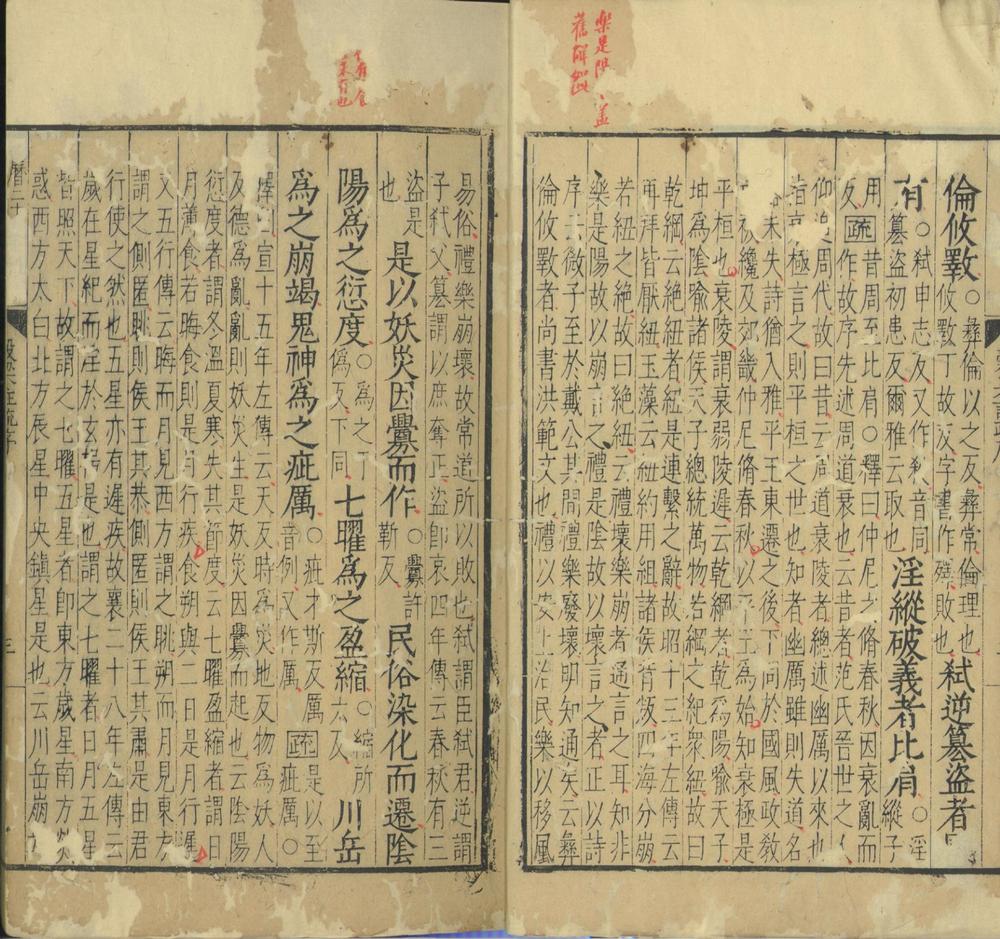 樂是陰
舊解如此
倫攸斁○彝倫以之反彝常倫理也弑逆篡盜者
攸斁丁故反字書作殬敗也
○弑申志反又作殺音同淫縱破義者比肩○淫
篡盜初患反爾雅云取也縱子
用昔周至比肩○釋曰仲尼之脩春秋因衰亂而
反疏作故序先述周道衰也云昔者范氏晉世之人
仰追周代故曰昔云周道衰陵者總述幽厲以來也
指衰極言之則平桓之世也知者幽厲雖則失道名
未失詩猶入雅平王東遷之後下同於國風政教
纔及郊畿仲尼脩春秋以平王爲始知衰極是
平桓也衰陵謂衰弱陵遲云乾綱者乾爲陽喻天子
坤爲陰喻諸侯天子總統萬物若綱之紀衆紐故曰
乾綱云絕紐者紐是連繫之辭故昭十三年左傳云
再拜皆厭紐玉藻云紐約用組諸侯背叛四海分崩
若紐之絕故曰絕紐云禮壞樂崩者通言之耳知非
樂是陽故以崩言之禮是陰故以壞言之者正以詩
序云微子至於戴公其間禮樂廢壞明知通矣云彝
倫攸斁者尚書洪範文也禮以安上治民樂以移風
易俗禮樂崩壞故常道所以敗也弑謂臣弑君逆謂
子弑父篡謂以庶奪正盜卽哀四年傳云春秋有三
盜是也是以妖災因釁而作○釁許靳反民俗染化而遷陰
陽爲之愆度○爲之于僞反下同七曜爲之盈縮○縮所六反川岳
爲之崩竭鬼神爲之疵厲○疵才斯反厲音例又作厲疏是以至疵厲○
釋曰宣十五年左傳云天反時爲災地反物爲妖人
反德爲亂亂則妖災生是妖災因釁而起也云陰陽
愆度者謂冬溫夏寒失其節度云七曜盈縮者謂日
月薄食若晦食則是月行疾食朔與二日是月行遲
又五行傳云晦而月見西方謂之朓朔而月見東方
謂之側匿朓則侯王其荼側匿則侯王其肅是由君
行使之然也五星亦有遲疾故襄二十八年左傳云
歲在星紀而淫於玄枵是也謂之七曜者日月五星
皆照天下故謂之七曜五星者卽東方歲星南方熒
惑西方太白北方辰星中央鎮星是也云川岳崩